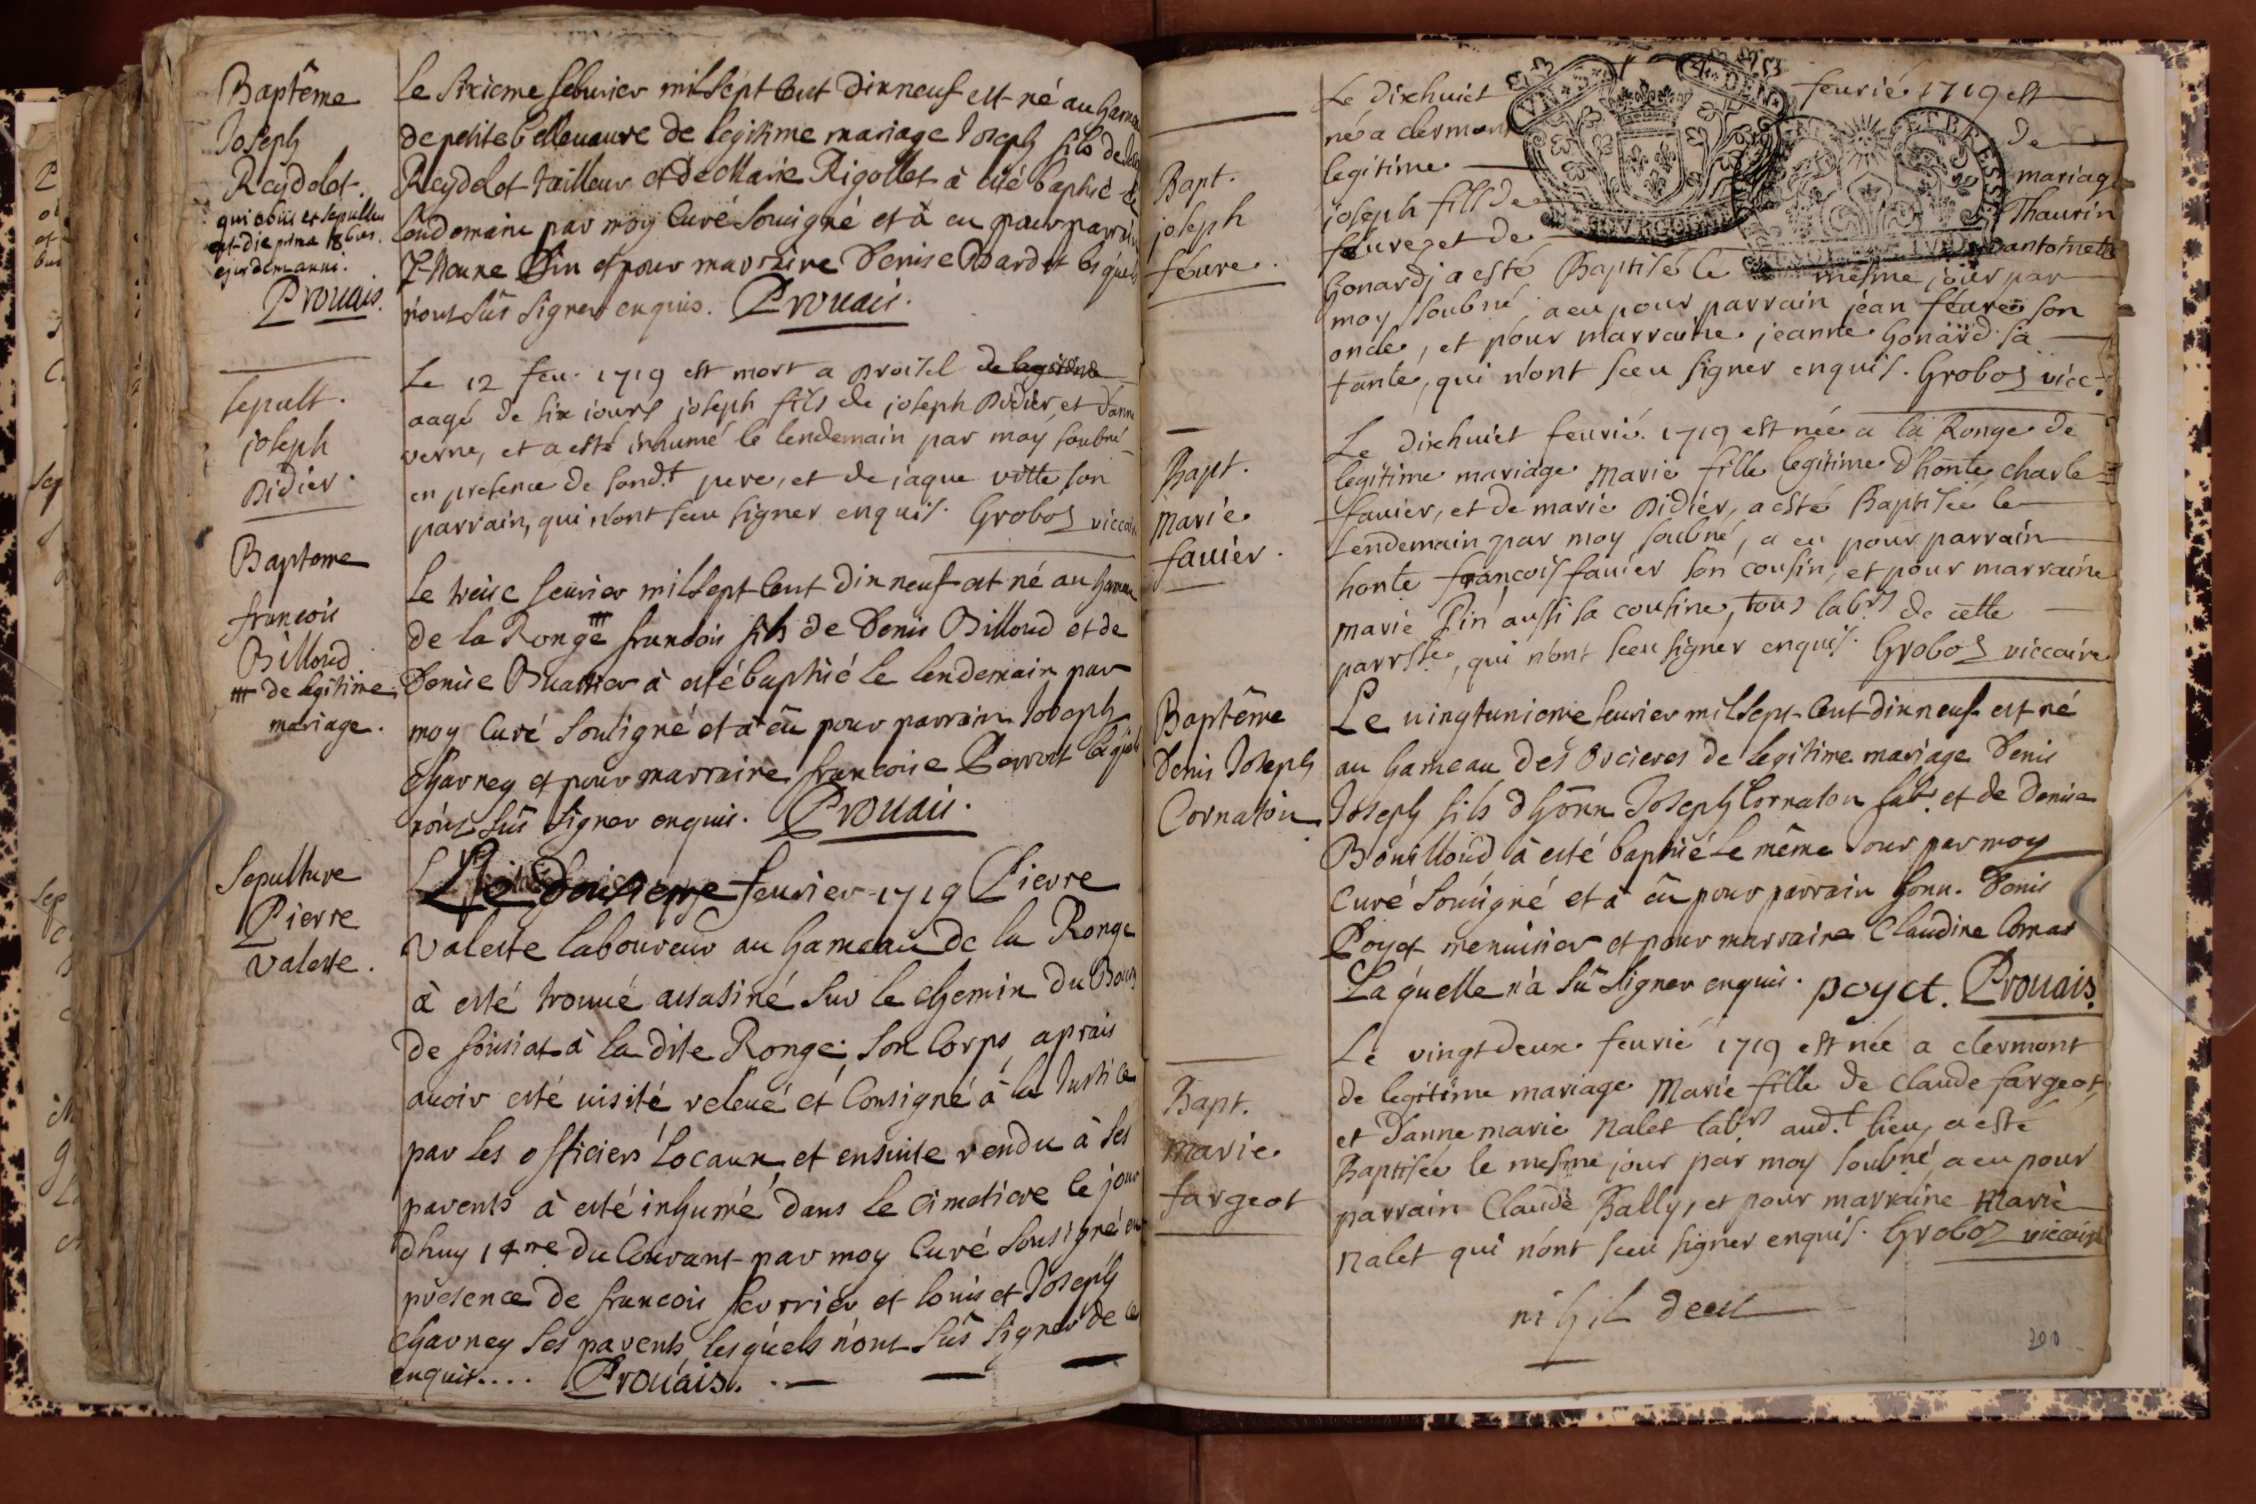 Baptême
Joseph
Reydelet.
qui obiit et sepultus
est die prima 8bris.
ejusdem anni.
Prouais.
Le sixieme feburier mil sept Cent Dix neuf est né au hameau
de petite bellevaure de legitime mariage Joseph fils de
Reydelet tailleur et de Marie Rigollet à esté baptisé le
lendemain par moy Curé Souсigné et à eu pour parrain
et pour marraine Denise lesquels
n'ont sûs signer enquis. Prouais.
sepult.
joseph
Didier.
Le 12 feu. 1719 est mort a Broisel
aagé de six jours joseph fils de joseph Didier, et d'anne
verne, et a esté inhumé le lendemain par moy soubné
en presence de sond.t pere, et de jaque vitte son
parrain, qui n'ont sceu signer enquis. Grobos viccaire
Bapteme
francois
Billoud.
de legitime
mariage.
Le treise feurier mil sept Cent Dix neuf est né au hameau
de la Ronge francois fils de Denis Billoud et de
Denise à esté baptisé le lendemain par
moy Curé Sousigné et à eû pour parrain Joseph
Charney et pour marraine francoise Perrot lesquels
n'ont sûs signer enquis. Prouais.
Sepulture
Pierre
Valeste.
Le feurier 1719 Pierre
Valeste laboureur au hameau de la Ronge
à esté trouué assasiné sur le chemin du Bourg
de à la dite Ronge; son Corps aprais
auoir esté uisité releué et Consigné à la Justice
par les officiers Locaux et ensuite rendu à ses
parents à esté inhumé dans le Cimetiere ce jour
dhuy 14me du Courant par moy Curé Sousigné en
presence de francois ferrier et louis et Joseph
Charney ses parents lesquels n'ont sûs signer de ce
enquis.... Prouais.
Bapt.
joseph
féure.
Le dixhuict feurié 1719 est
né a clermont de
legitime mariage
joseph fill de Thaurin
féure, et de antoinette
Gonard; a esté Baptisé le mesme jour par
moy soubné, a eu pour parrain jean féure son
oncle, et pour marraine jeanne Gonard sa
tante, qui n'ont sceu signer enquis. Grobos vicc.
Bapt.
Marie
fauier.
Le dixhuict feurié. 1719 est née a la Ronge de
legitime mariage Marie fille legitime d'honte charle
fauier, et de marie Didier, a esté Baptisée le
Lendemain par moy soubné, a eu pour parrain
honte françois fauier son cousin, et pour marraine
marie Pin aussi sa cousine, tous labrs de cette
parrsse, qui n'ont sceu signer enquis. Grobos viccaire
Baptême
Denis Joseph
Cornaton
Le uingtunieme feurier mil sept Cent dix neuf est né
au hameau des Orcieres de legitime mariage Denis
Joseph fils d'honn Joseph Cornaton labr. et de Denise
Bouilloud à esté baptisé le même Jour par moy
Curé Sousigné et à eû pour parrain honn. Denis
Poyet menuisier et pour marraine Claudine Comas
Laquelle n'à sû signer enquis. poyet. Prouais.
Bapt.
marie
fargeot
Le vingtdeux feurié 1719 est née a clermont
de legitime mariage Marie fille de claude fargeot,
et d'anne marie Nalet labrs aud.t lieu, a esté
Baptisée le mesme jour par moy soubné, a eu pour
parrain Claude Bally, et pour marraine Marie
Nalet qui n'ont sceu signer enquis. Grobos vicaire
nihil deest
200